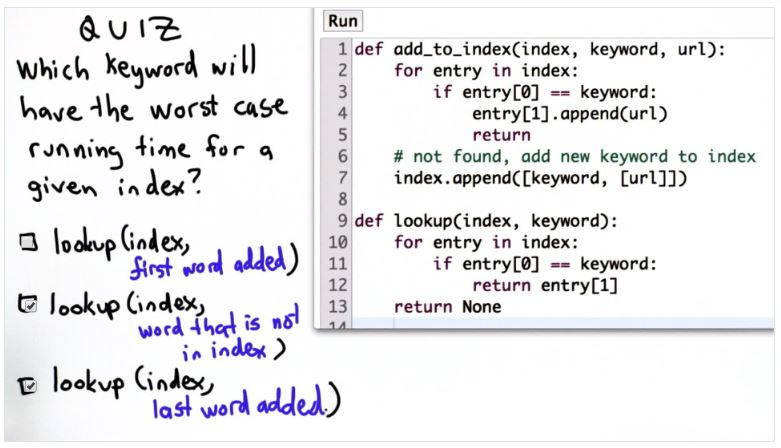 QUIZ
Which keyword will
have the worst case
running time for a
given index?
lookup (index,
first word added)
lookup (index,
word that is not
in index)
lookup (index,
last word added.)
Run
1 def add_to_index(index, keyword, url):
2     for entry in index:
3         if entry[0] == keyword:
4             entry[1].append(url)
5             return
6     # not found, add new keyword to index
7     index.append([keyword, [url]])
8
9 def lookup(index, keyword):
10     for entry in index:
11         if entry[0] == keyword:
12             return entry[1]
13     return None
14